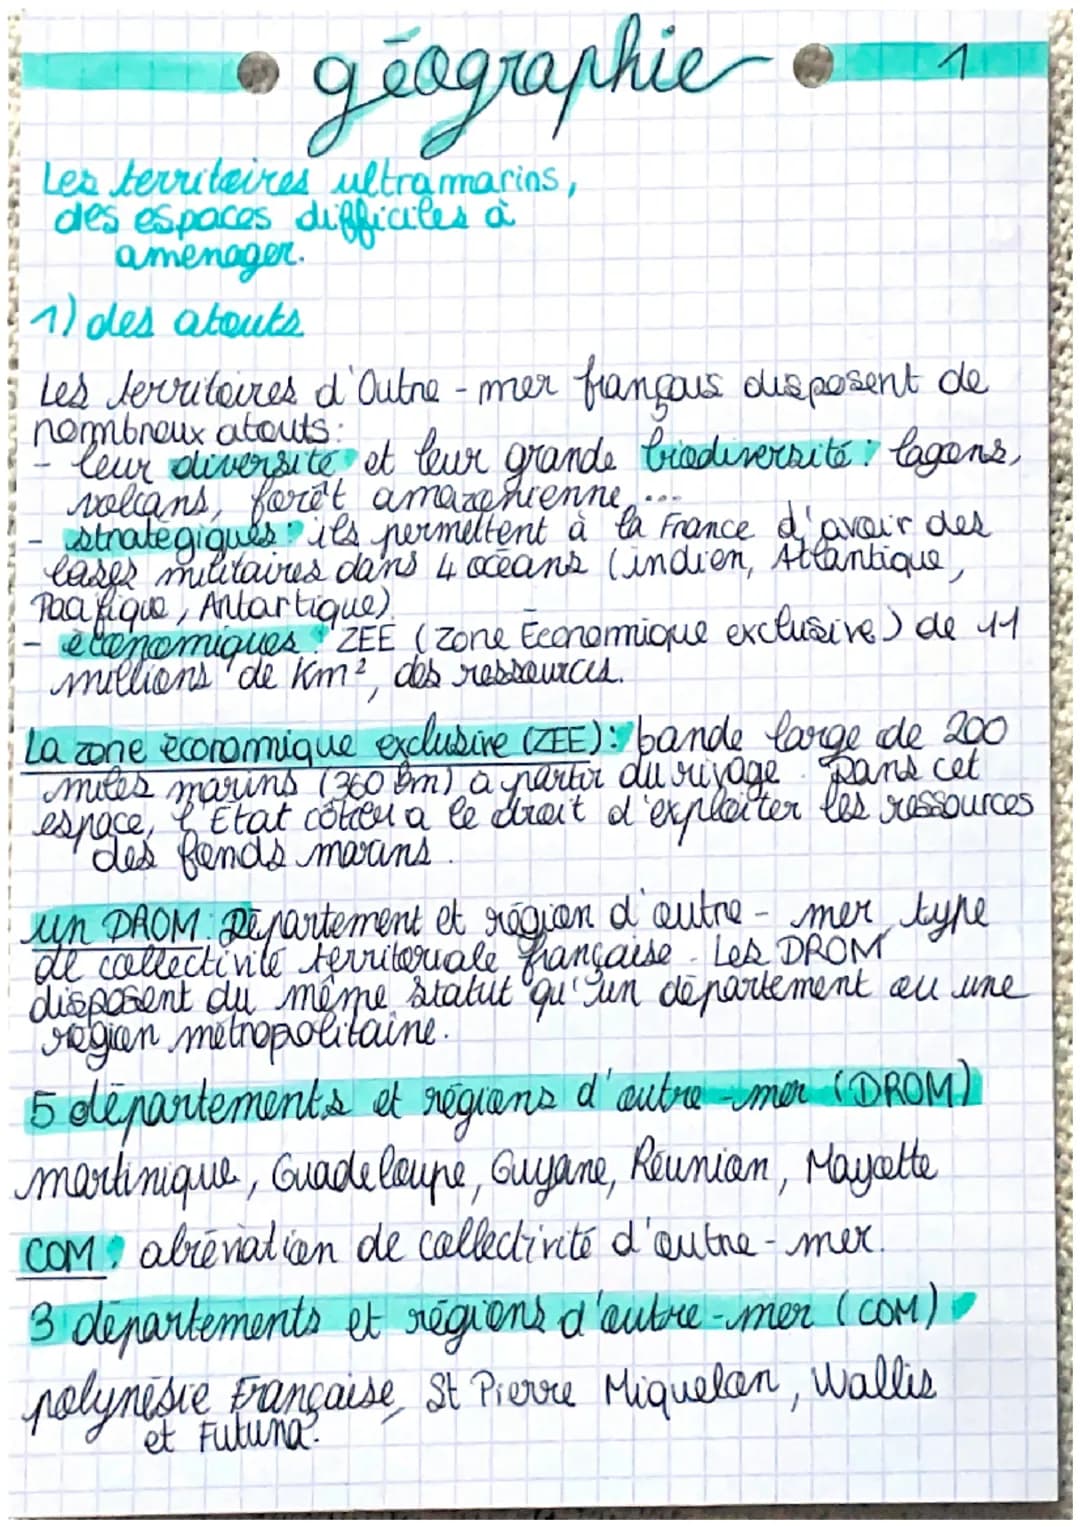 géographie 1
Les territoires ultramarins,
des espaces difficiles à
amenager.
1) des atouts
Les territoires d'Outre-mer français disposent de
nombreux atouts:
- leur diversité et leur grande biodiversité: lagons,
volcans, forêt amazonienne, ...
- stratégiques: ils permettent à la France d'avoir des
bases militaires dans 4 océans (indien, Atlantique,
Pacifique, Antartique)
- économiques: ZEE (Zone Économique exclusive) de 11
millions de Km², des ressources.
La zone économique exclusive (ZEE): bande large de 200
miles marins (360 km) a partir du rivage. Dans cet
espace, l'État côtier a le droit d'exploiter les ressources
des fonds marins.
un DROM: Département et région d'outre-mer, type
de collectivité territoriale française. Les DROM
disposent du même statut qu'un département ou une
région métropolitaine.
5 départements et régions d'outre-mer (DROM)
martinique, Guadeloupe, Guyane, Réunion, Mayotte
COM: abréviation de collectivité d'outre-mer.
3 départements et régions d'outre-mer (COM)
polynésie Française, St Pierre Miquelon, Wallis
et Futuna.